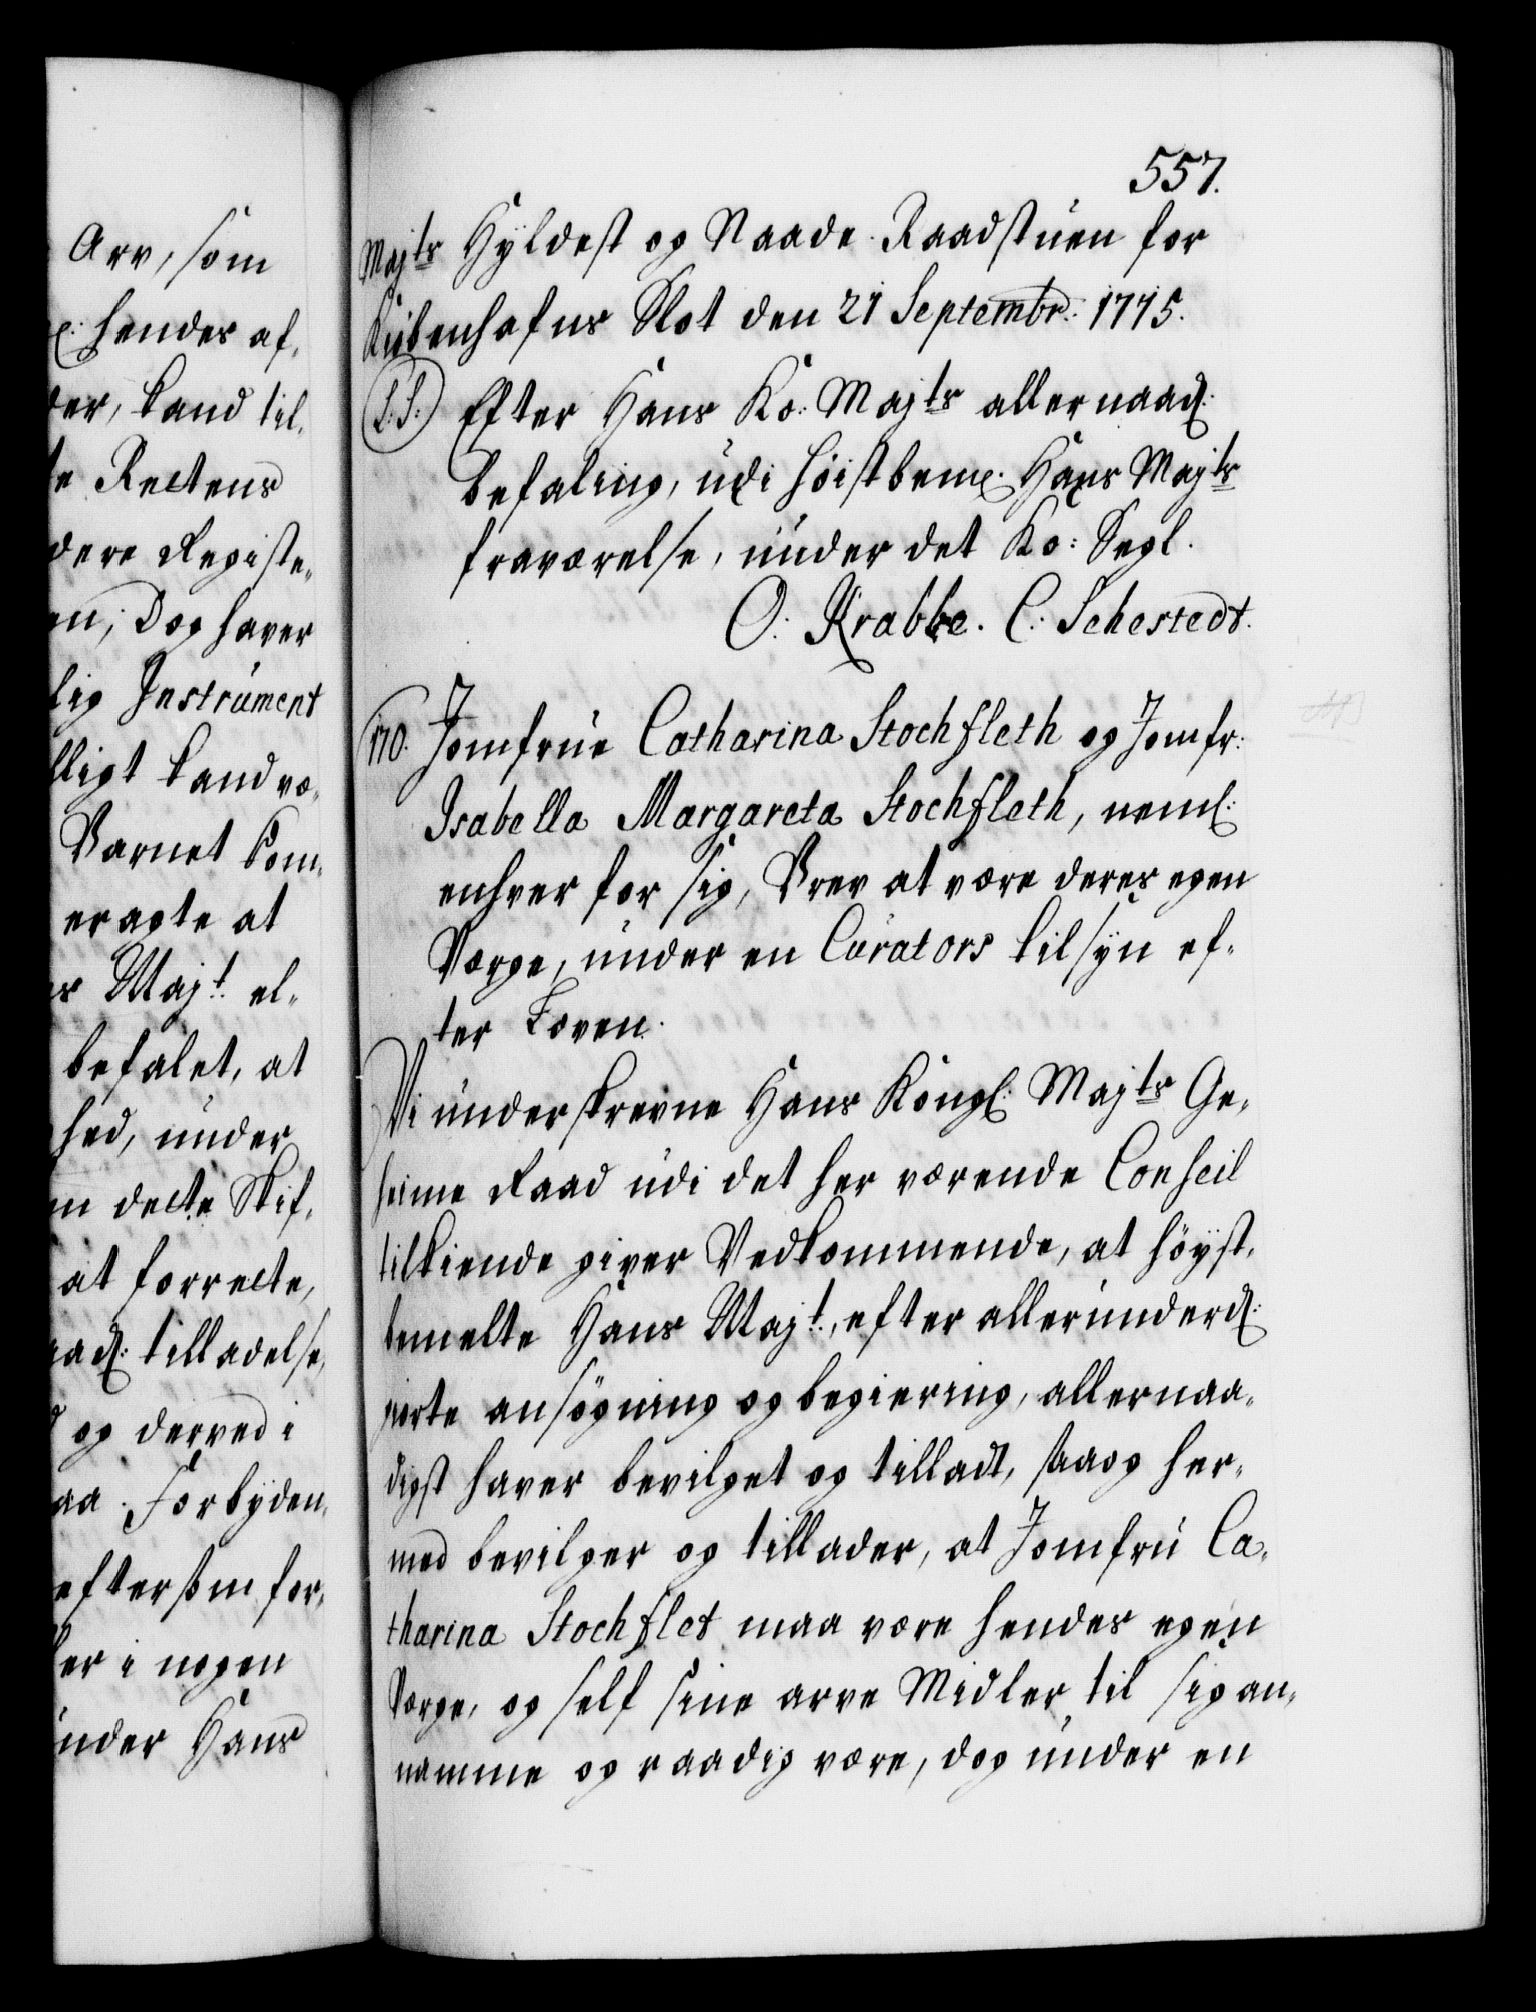 Arv, som
hendes af-
der, kand til-
te Rettens
dere Registe-
en; Dog haver
lig Instrument
lligt kand væ-
Barnet kom-
er agte at
Majt. el-
befalet, at
hed, under
m dette Skif-
at forrette,
tilladelse,
og derved i
Forbyden-
eftersom for-
ler i nogen
under Hans
557.
Majts Hyldest og Naade. Raadstuen for
Kiöbenhafns Slot den 21 Septembr: 1715.
(L.S.) Efter Hans Ko: Majts allernaad:
befaling, udi höistbem: Hans Majts
fraværelse, under det Ko: Segl.
O: Krabbe. C: Sehestedt.
170. Jomfrue Catharina Stochfleth og Jomfr:
Isabella Margareta Stochfleth, neml:
enhver for sig, Brev at være deres egen
Værge, under en Curators tilsyn ef-
ter Loven.
Vi underskrevne Hans Kongl: Majts Ge-
heime Raad udi det her værende Conseil
tilkiende giver Vedkommende, at höyst-
bemelte Hans Majt., efter allerunderd:
giorte ansögning og begiering, allernaa-
digst haver bevilget og tilladt, saaog her-
med bevilger og tillader, at Jomfru Ca-
tharina Stochflet maa være hendes egen
Værge, og self sine arve Midler til sig an-
namme og raadig være, dog under en